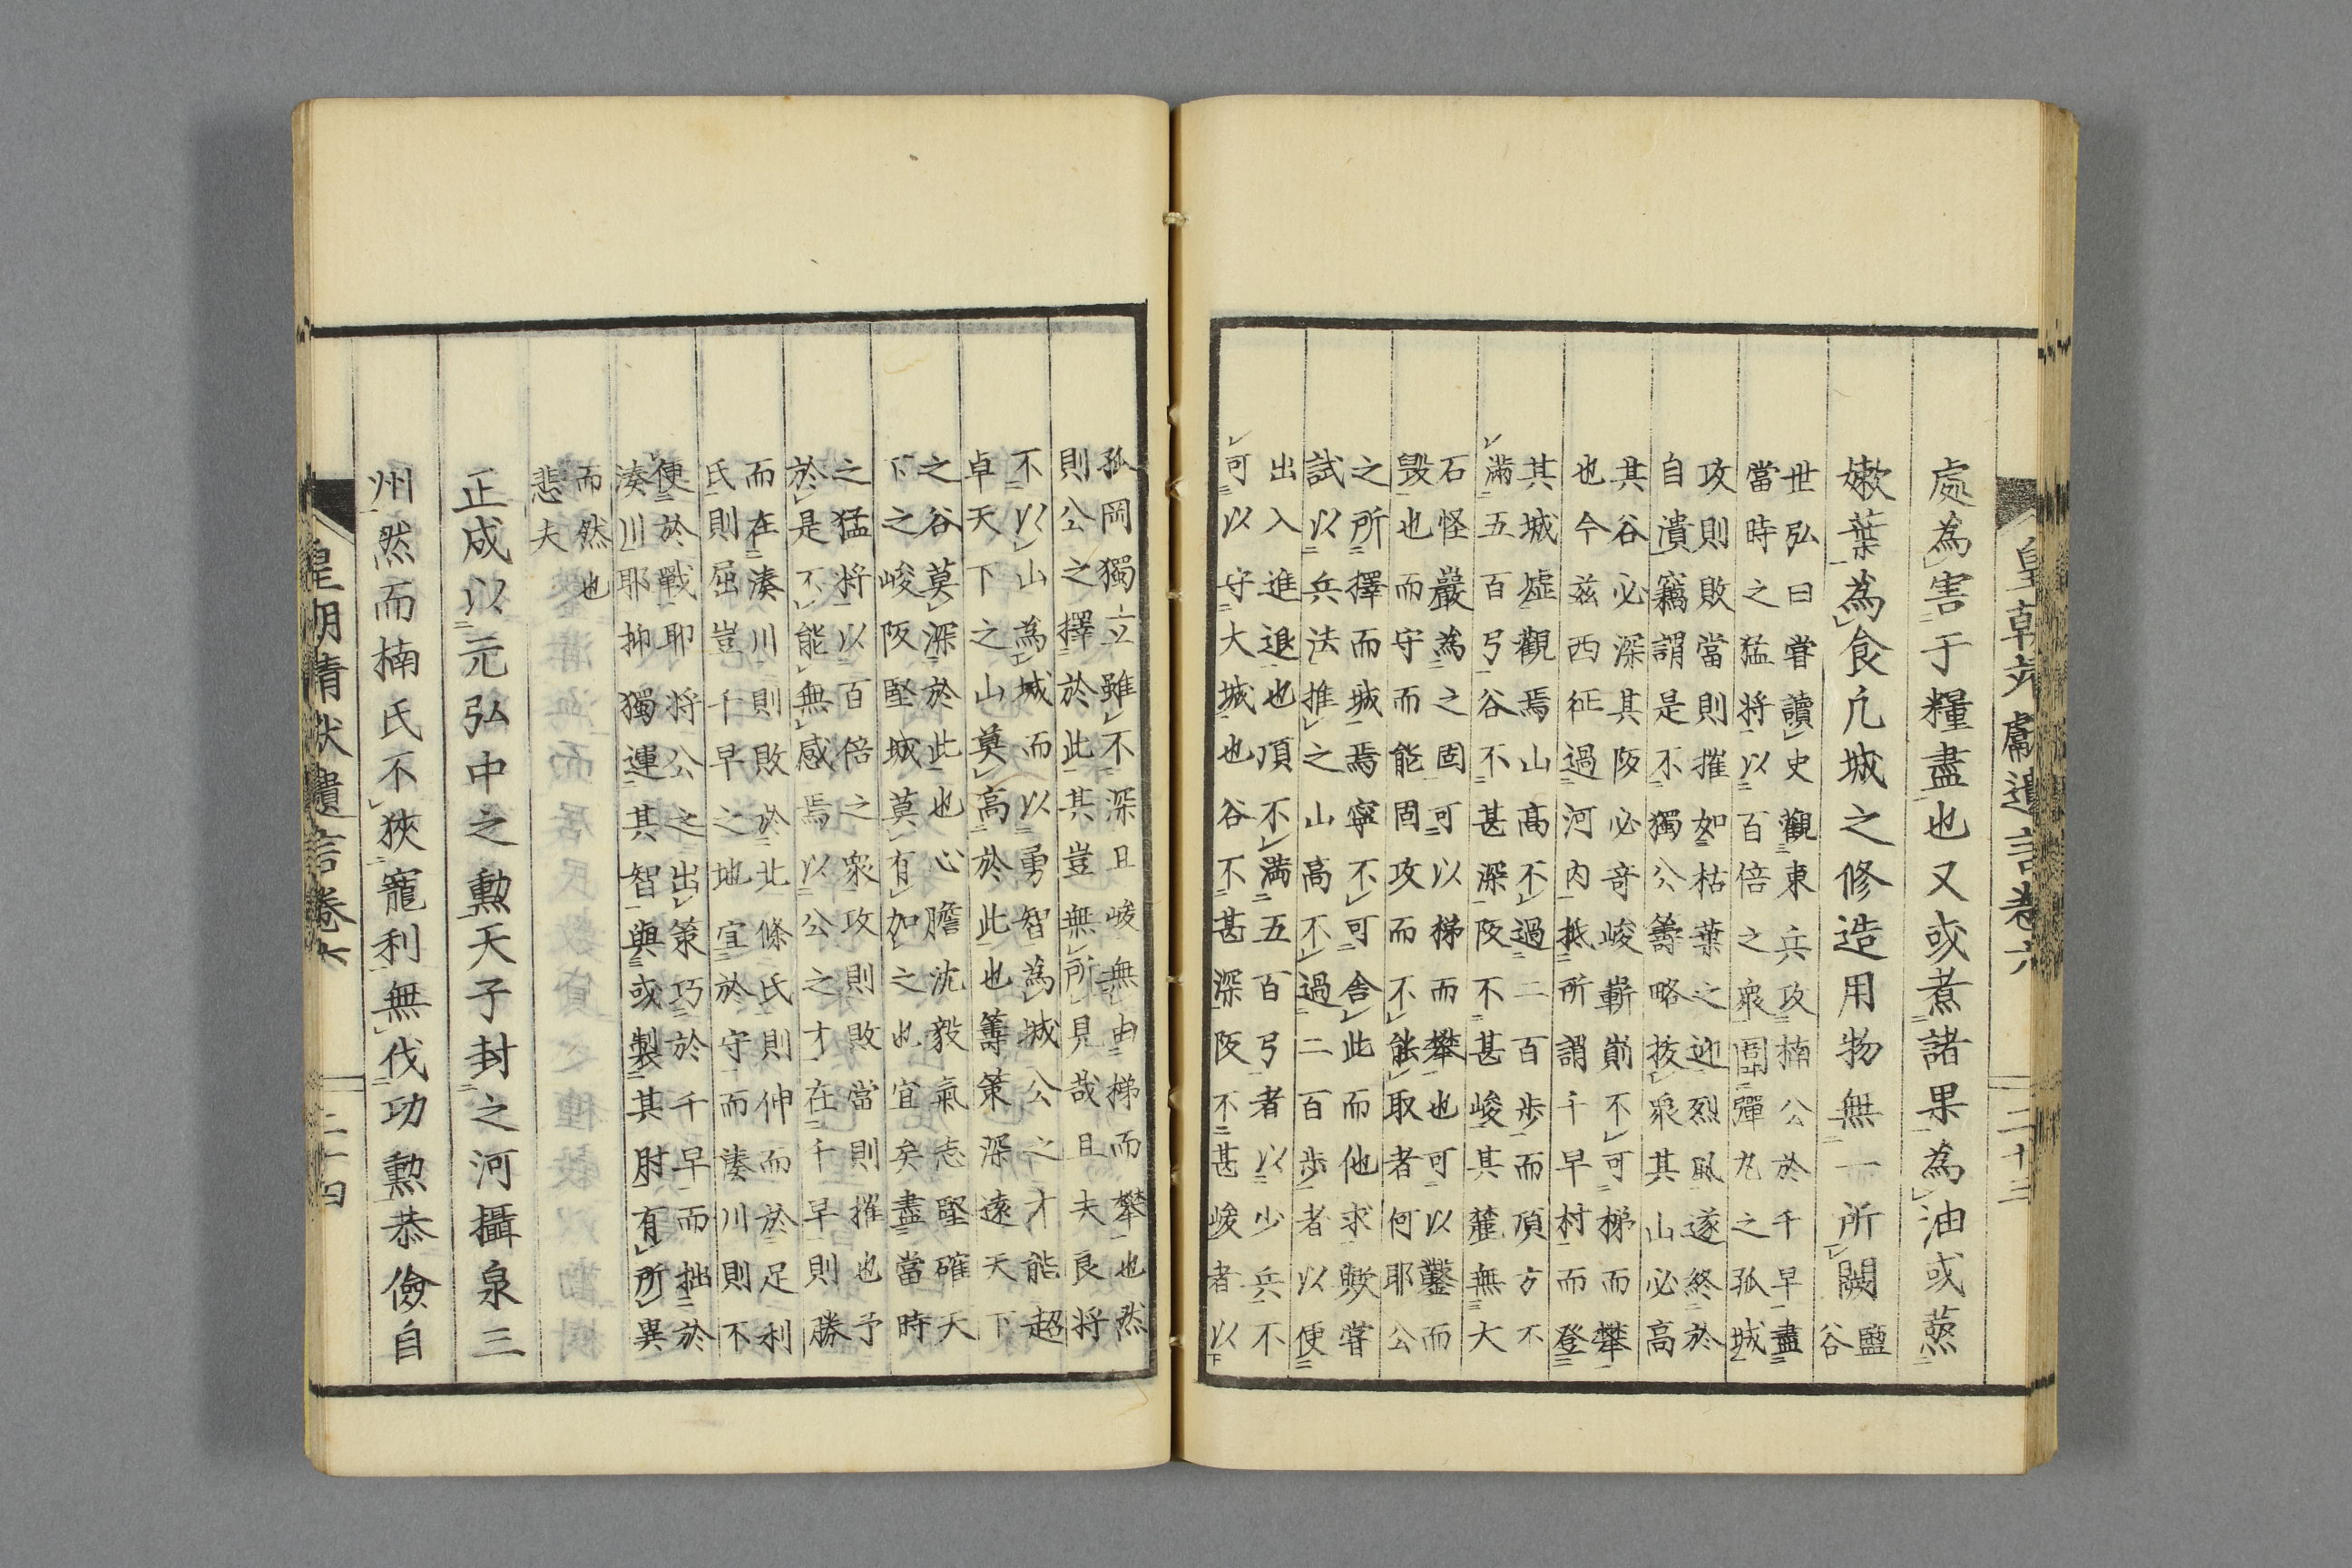 處為害于糧盡也又或煮諸果為油或蒸
嫰葉為食凢城之修造用物無一所闕盬
谷
世弘曰甞讀史觀東兵攻楠公於千早盡
當時之猛將以百倍之衆圍彈丸之孤城
攻則敗當則摧如枯葉之迎烈風遂終於
自潰竊謂是不獨公籌略拔衆其山必高
其谷必深其阪必竒峻嶄崱不可梯而攀
也今兹西征過河内抵所謂千早村而登
其城墟觀焉山髙不過二百歩而頂方不
滿五百弓谷不甚深阪不甚峻其麓無大
石怪巖為之固可以梯而攀也可以鑿而
毁也而守而能固攻而不能取者何耶公
之所擇而城焉寧不可舎此而他求歟甞
試以兵法推之山高不過二百歩者以便
出入進退也頂不満五百弓者以少兵不
可以守大城也谷不甚深阪不甚峻者以
孤岡獨立雖不深且峻無由梯而攀也然
則公之擇於此其豈無所見哉且夫良将
不以山為城而以勇智為城公之才能超
卓天下之山莫高於此也籌策深遠天下
之谷莫深於此也心膽沈毅氣志堅確天
下之峻阪堅城莫有如之也宜矣盡當時
之猛将以百倍之衆攻則敗當則摧也予
於是不能無感焉以公之才在千早則勝
而在湊川則敗於北條氏則伸而於足利
氏則屈豈千早之地宜於守而湊川則不
便於戰耶将公之出策巧於千早而拙於
湊川耶抑獨運其智與或製其肘有所異
而然也
悲夫
正成以元弘中之勲天子封之河攝泉三
州然而楠氏不狹寵利無伐功勲恭儉自
二十四